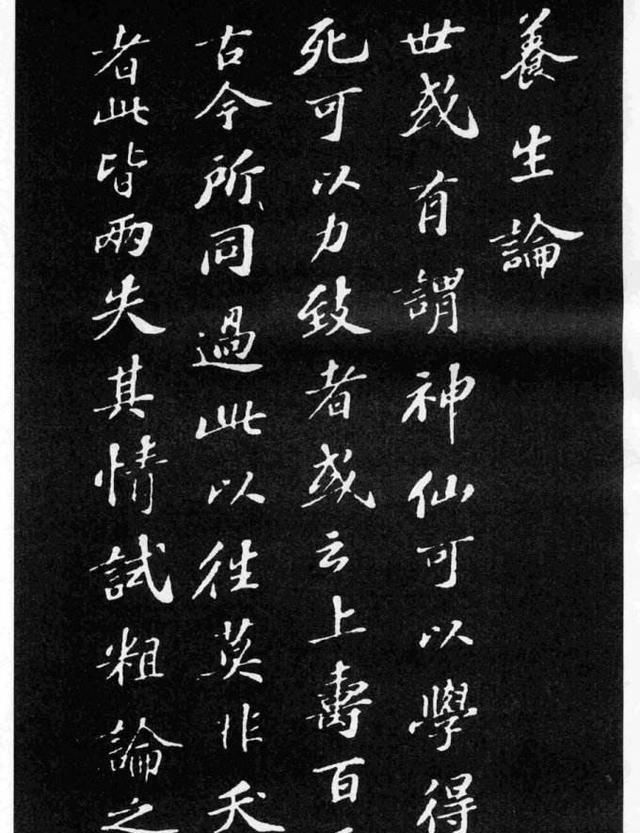 養生論
世或有謂神仙可以學得
死可以力致者或云上壽百
古今所同過此以往莫非夭
者此皆兩失其情試粗論之